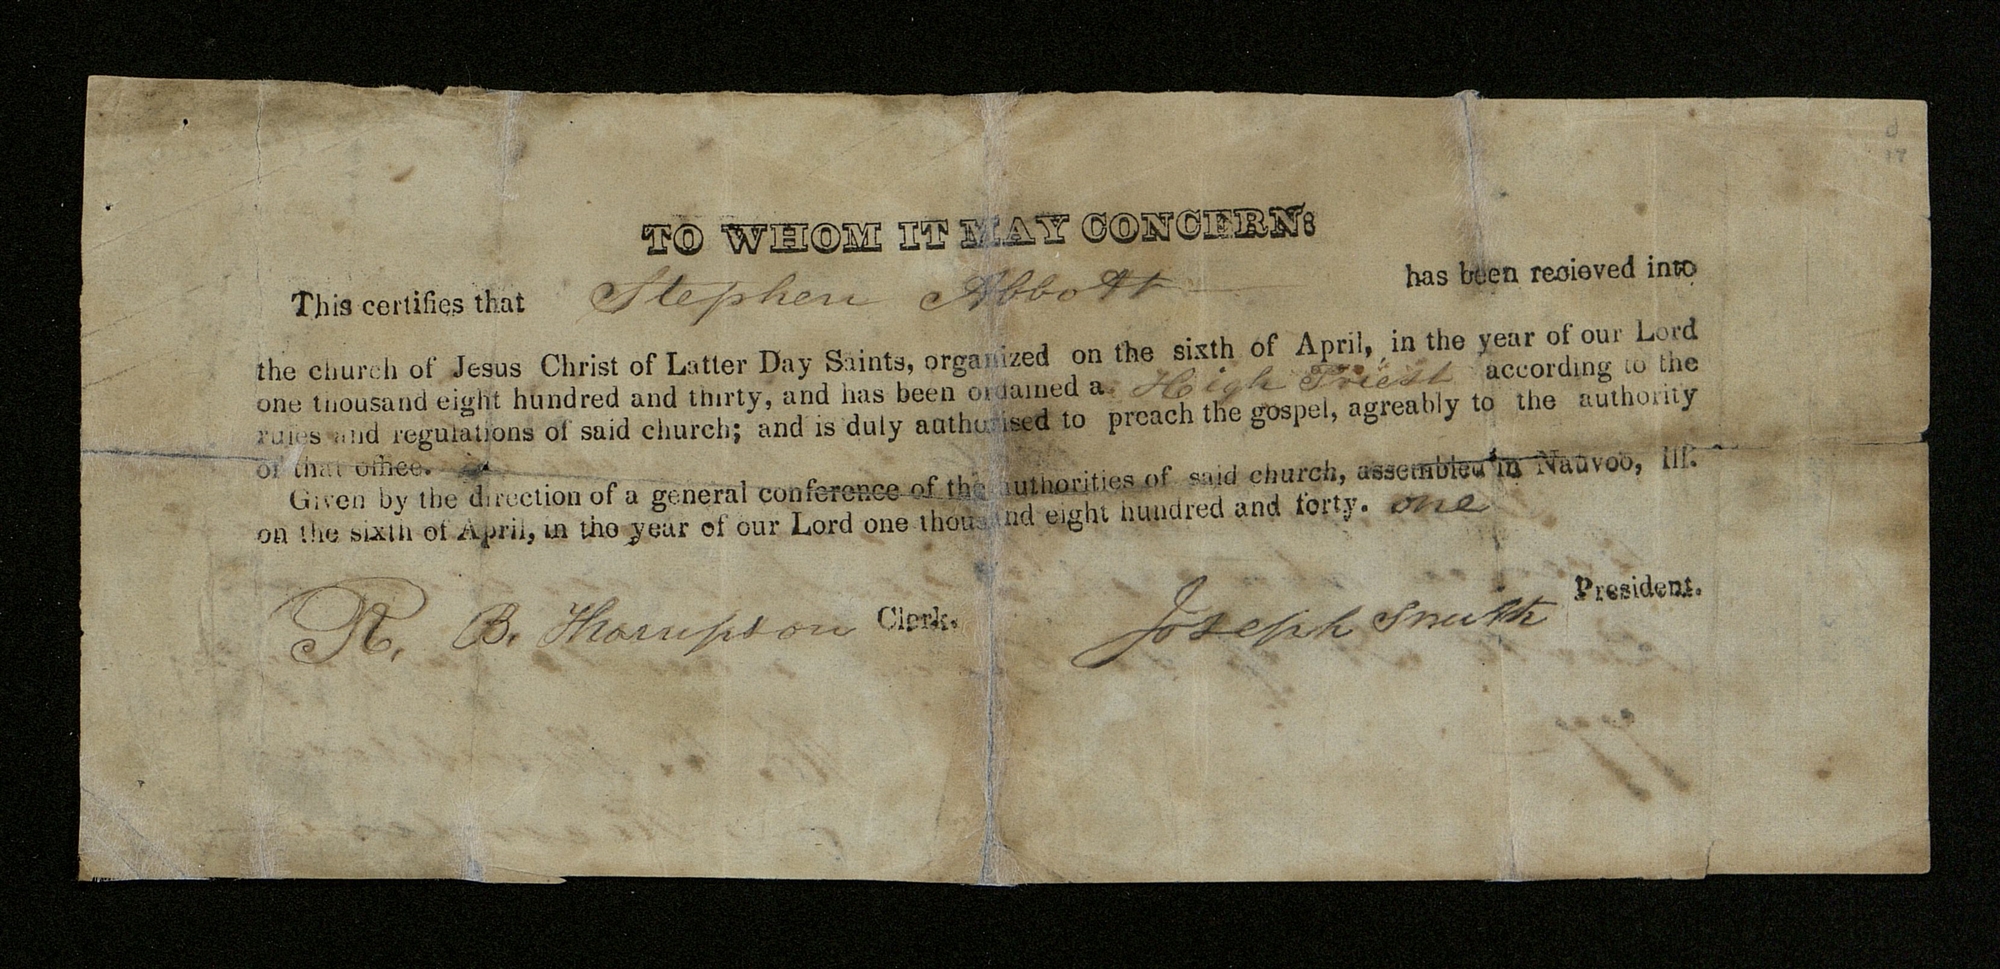 TO WHOM IT MAY CONCERN:
This certifies that Stephen Abbott has been recieved into
the church of Jesus Christ of Latter Day Saints, organized on the sixth of April, in the year of our Lord
one thousand eight hundred and thirty, and has been ordained a High Priest according to the
rules and regulations of said church; and is duly authorised to preach the gospel, agreably to the authority
of that office.
Given by the direction of a general conference of the authorities of said church, assembled in Nauvoo, Ill.
on the sixth of April, in the year of our Lord one thousand eight hundred and forty. one
R. B. Thompson Clerk. Joseph Smith President.